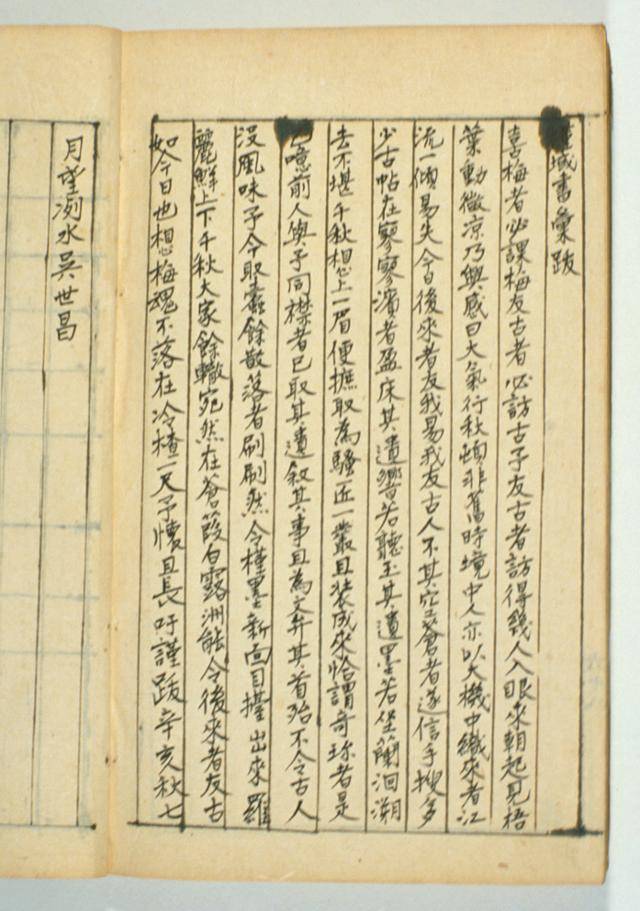 城書彙跋
喜梅者必課梅友古者必訪古予友古者訪得幾人入眼來朝起見梧
葉動微凉乃興感曰大氣行秋頓非舊時境中人亦以大機中織來者江
流一傾易失今日後來者友我易我友古人不其空蒼者遂信手搜多
少古帖在寥寥濱者盈床其遺響若聽玉其遺墨若坐蘭洄溯
去不堪千秋想上一眉便摭取為騷匠一叢且裝成來恰謂奇珎者是
噫前人與予同襟者已取其遺叙其事且為文弁其首殆不令古人
沒風味予今取蠹餘散落者刷刷然令槿墨新面目擡出來羅
麗鮮上下千秋大家餘轍宛然在蒼葭白露洲能令後來者友古
如今日也想梅魂不落在冷楂一尺予懷且長吁謹跋辛亥秋七
月望冽水吳世昌